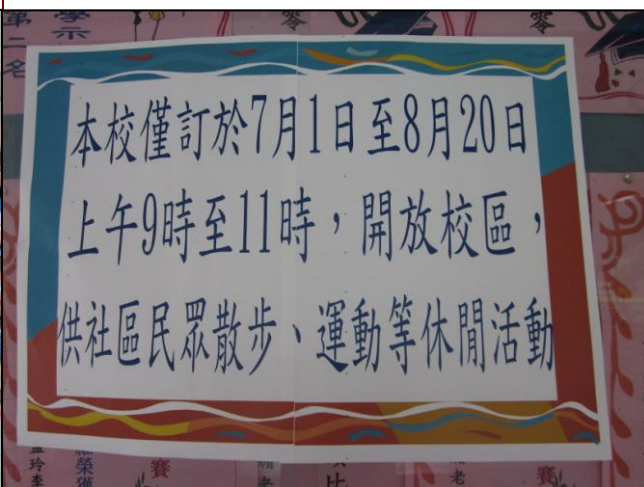 本校僅訂於7月1日至8月20日
上午9時至11時，開放校區，
供社區民眾散步、運動等休閒活動